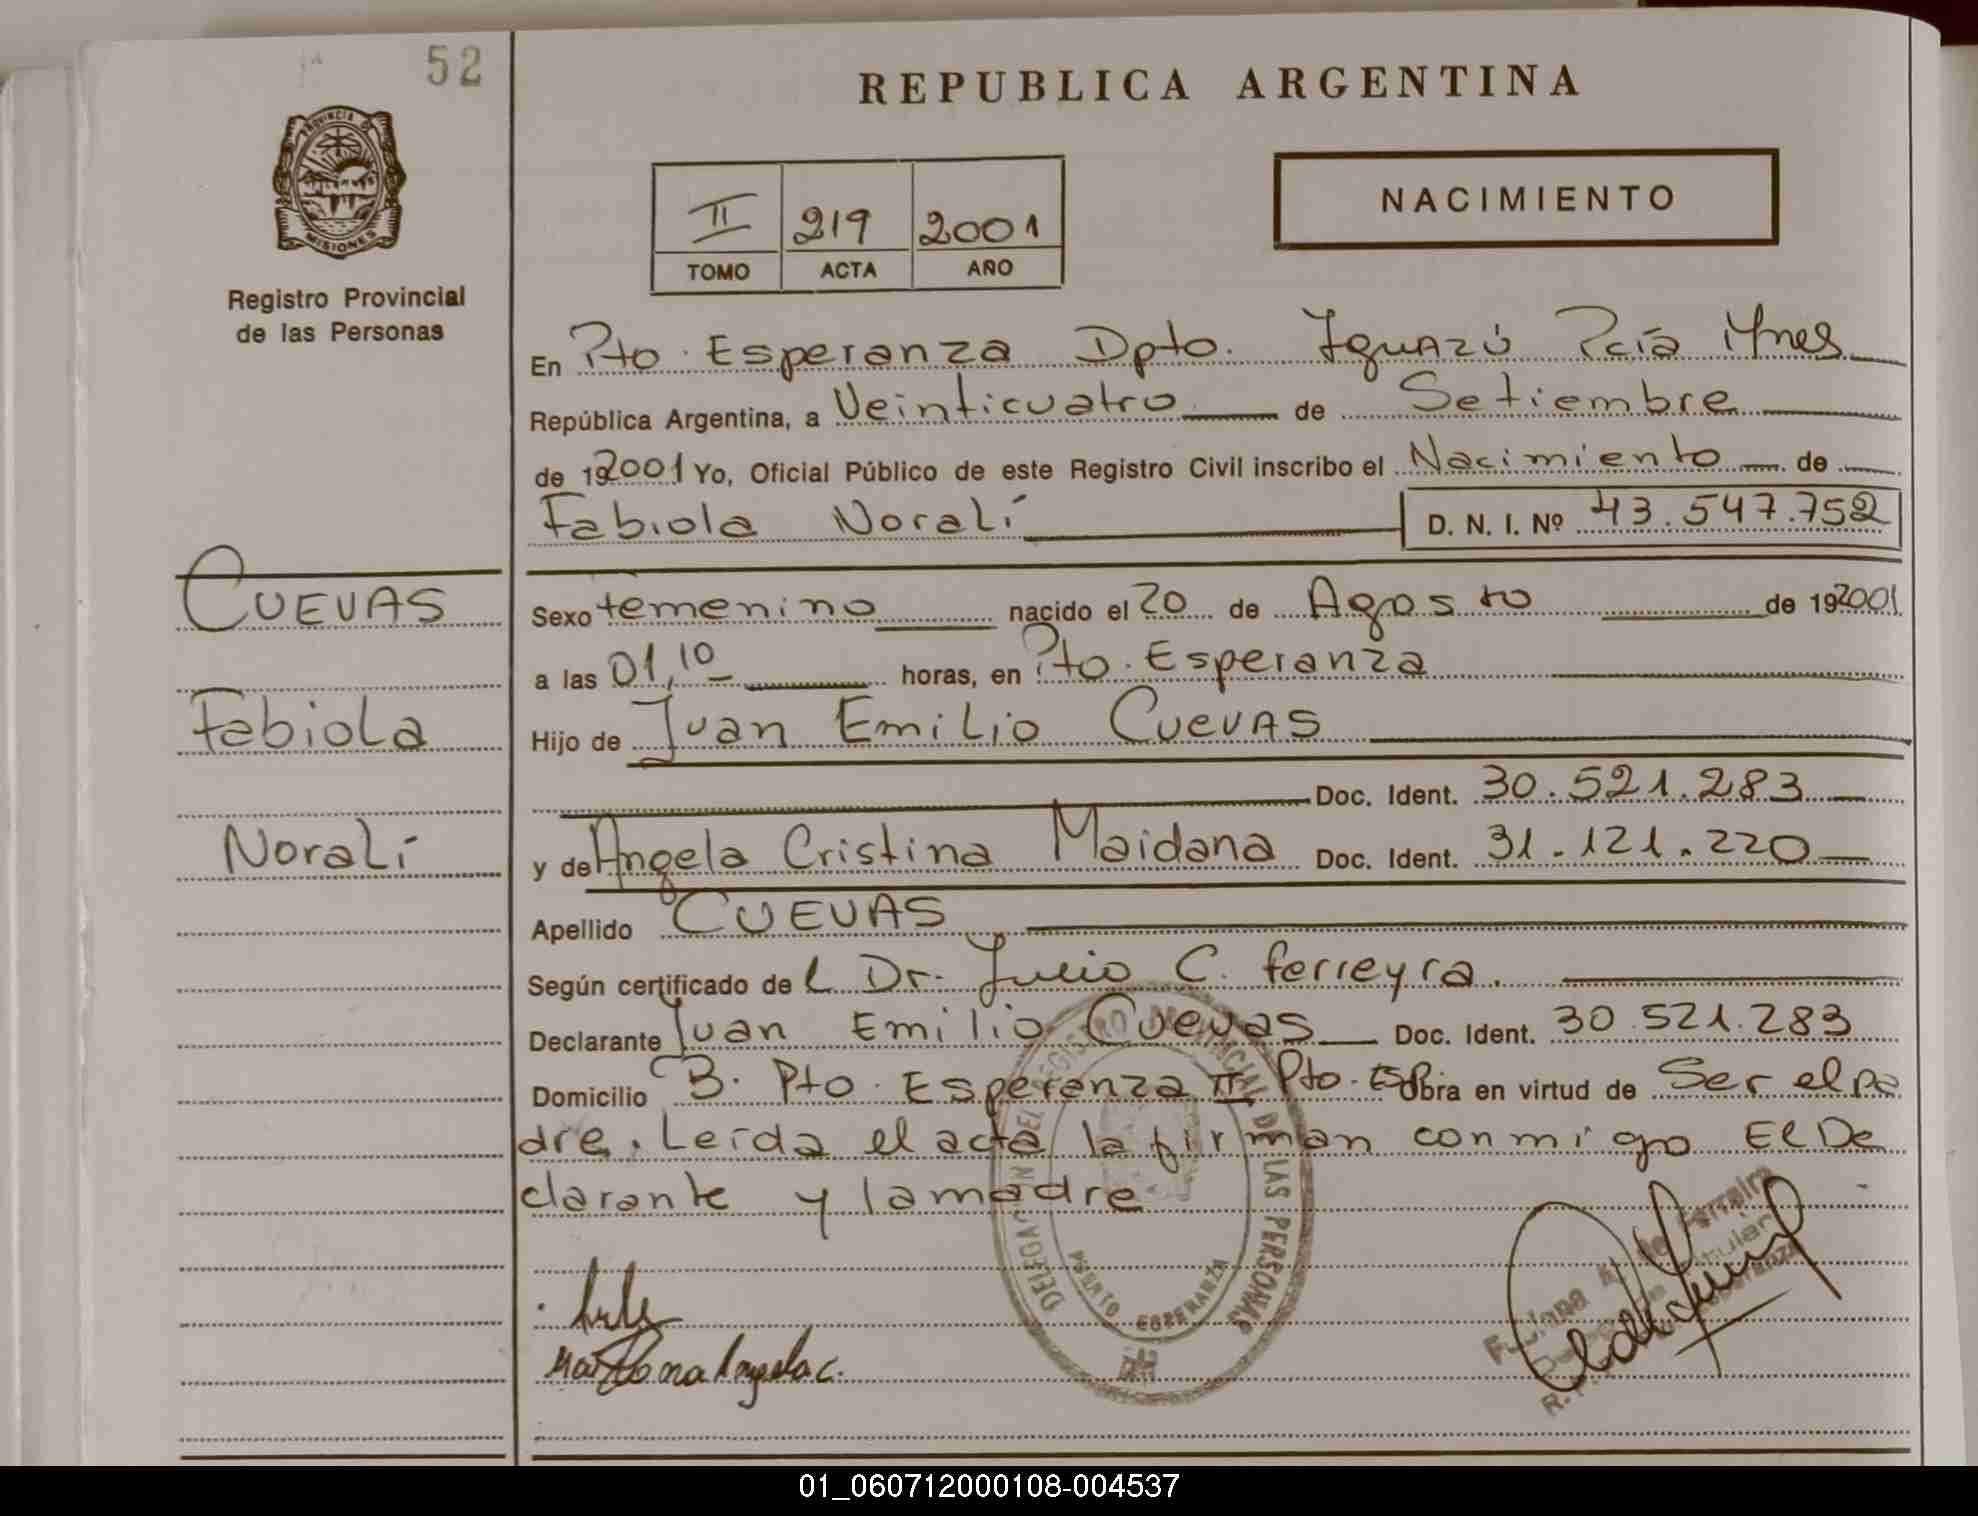 52
PROVINCIA DE
MISIONES
Registro Provincial
de las Personas
REPUBLICA ARGENTINA
II 219 2001
TOMO ACTA AÑO
NACIMIENTO
En Pto. Esperanza Dpto. Iguazú Pcía Mnes
República Argentina, a Veinticuatro de Setiembre
de 192001 Yo, Oficial Público de este Registro Civil inscribo el Nacimiento de
Fabiola Noralí D. N. I. Nº 43.547.752
CUEVAS
Fabiola
Noralí
Sexo femenino nacido el 20 de Agosto de 192001
a las 01,10 horas, en Pto. Esperanza
Hijo de Juan Emilio CUEVAS
Doc. Ident. 30.521.283
y de Angela Cristina Maidana Doc. Ident. 31.121.220
Apellido CUEVAS
Según certificado del Dr. Julio C. ferreyra.
Declarante Juan Emilio Cuevas Doc. Ident. 30.521.283
Domicilio B. Pto. Esperanza II Pto. Esp. Obra en virtud de Ser el pa
dre. Leída el acta la firman conmigo El De
clarante y la madre
DELEGACION DEL REGISTRO PROVINCIAL DE LAS PERSONAS
PUERTO ESPERANZA
Angela C.
01_060712000108-004537